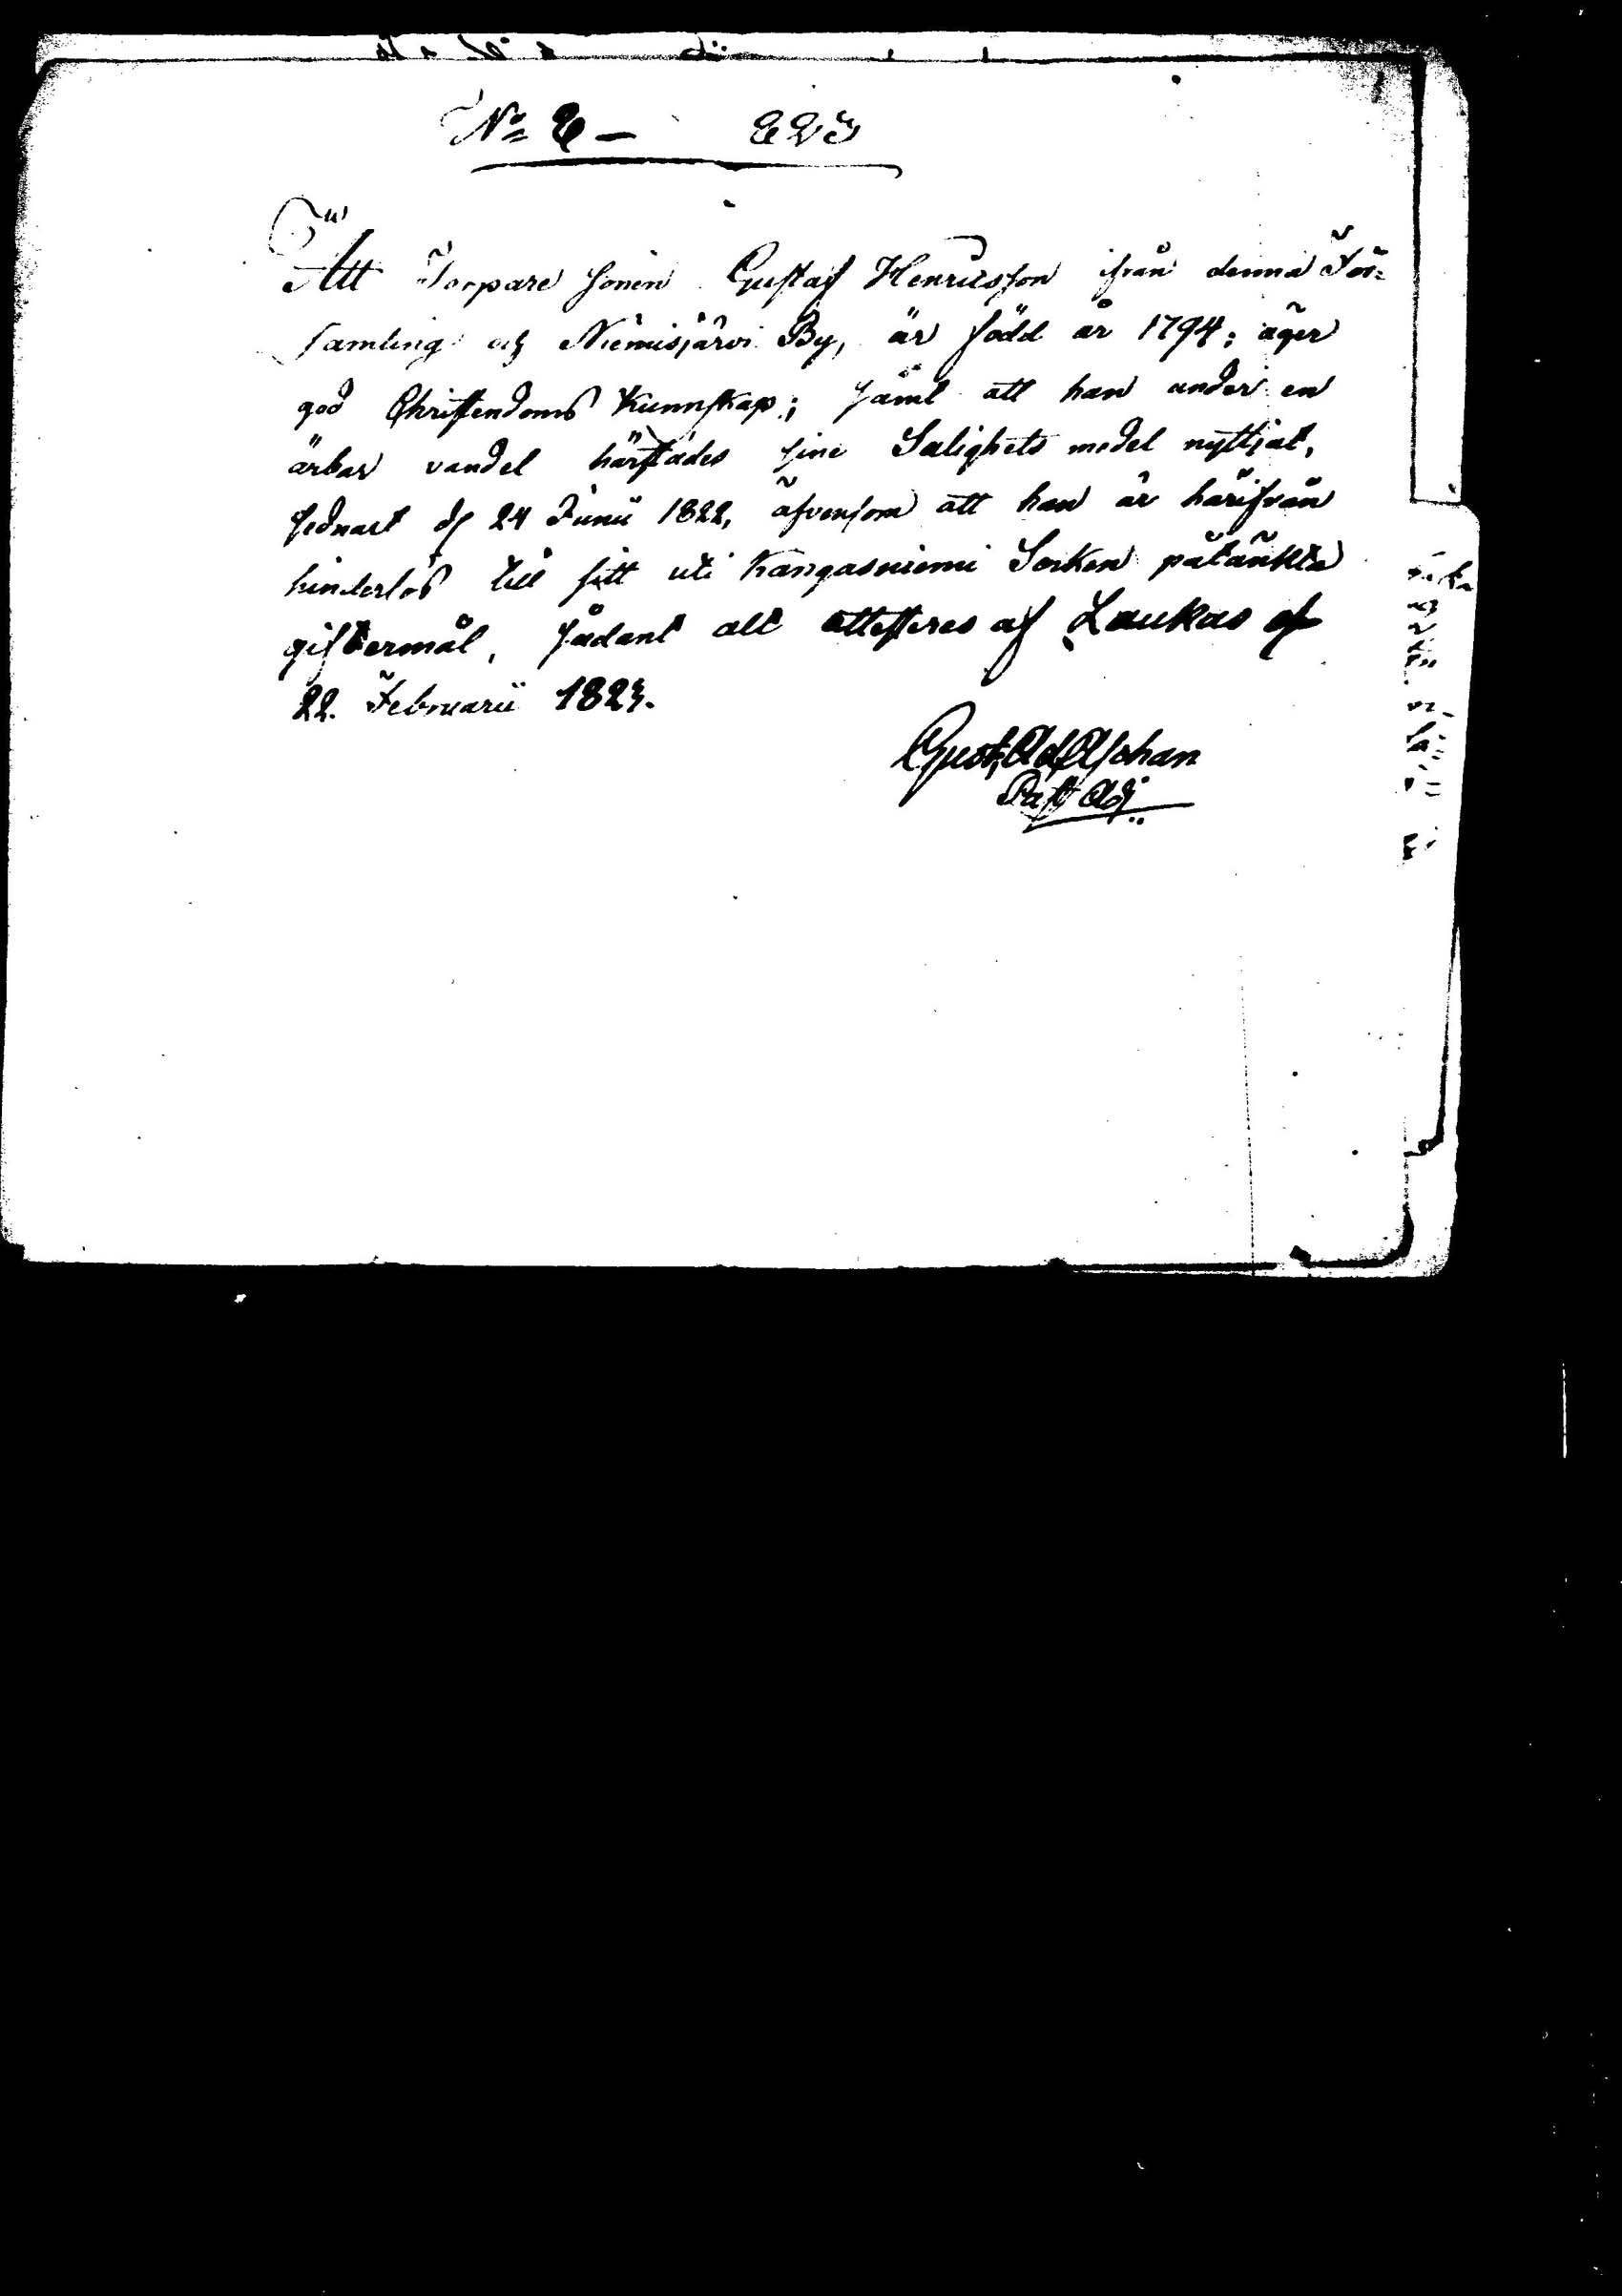 No 2 — 223
Att Torpare sonen Gustaf Henricsson ifrån denna För-
samling och Niemisjärvi By, är född år 1794; äger
god Christendoms Kunnskap; samt att han under en
ärbar vandel härstädes sine Salighets medel nyttjat,
sednast d. 24 Junii 1822, äfvensom att han är härifrån
hinderlös till sitt uti Kangasniemi Socken påtänkta
giftermål, sådant allt attesteres af Laukas d.
22. Februarii 1823.
Gust. Ad. Aschan
Past. Adj.